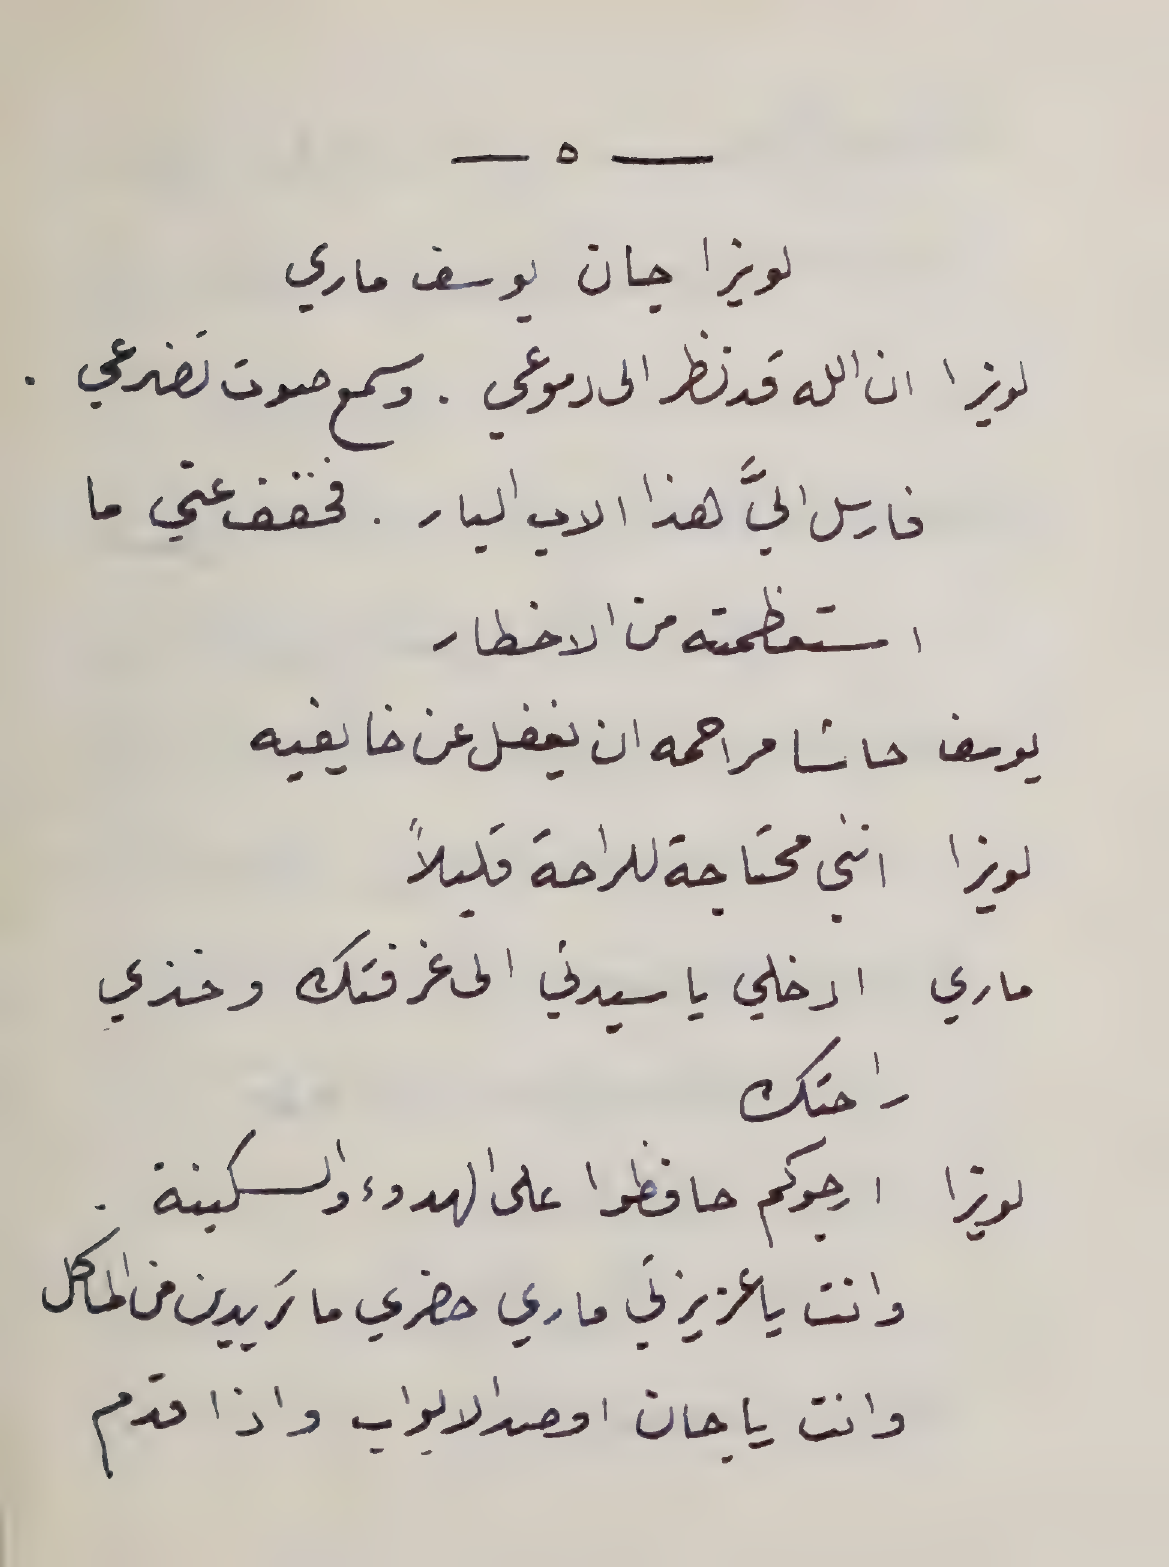 — ٥ —
لويزا جان يوسف ماري
لويزا ان الله قد نظر الى دموعي . وسمع صوت تضرعي .
فارسل اليَّ هذا الاب البار . فخفف عني ما
استعظمته من الاخطار
يوسف حاشا مراحمه ان يغفل عن خايفيه
لويزا انني محتاجة للراحة قليلاً
ماري ادخلي يا سيدتي الى غرفتك وخذي
راحتك
لويزا ارجوكم حافظوا على الهدوء والسكينة .
وانت يا عزيزتي ماري حضري ما تريدين من المأكل
وانت يا جان اوصد الابواب واذا قدم